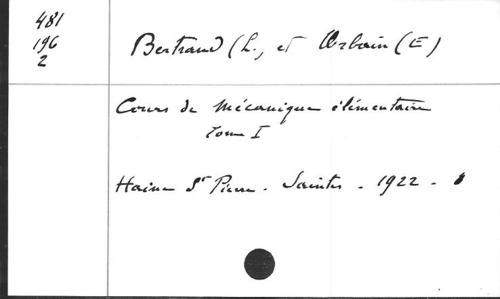 481
196
2
Bertrand (L., et Orbain (E)
Cours de Mécanique élémentaire
Tome I
Haine St Pierre - Saintes - 1922 -